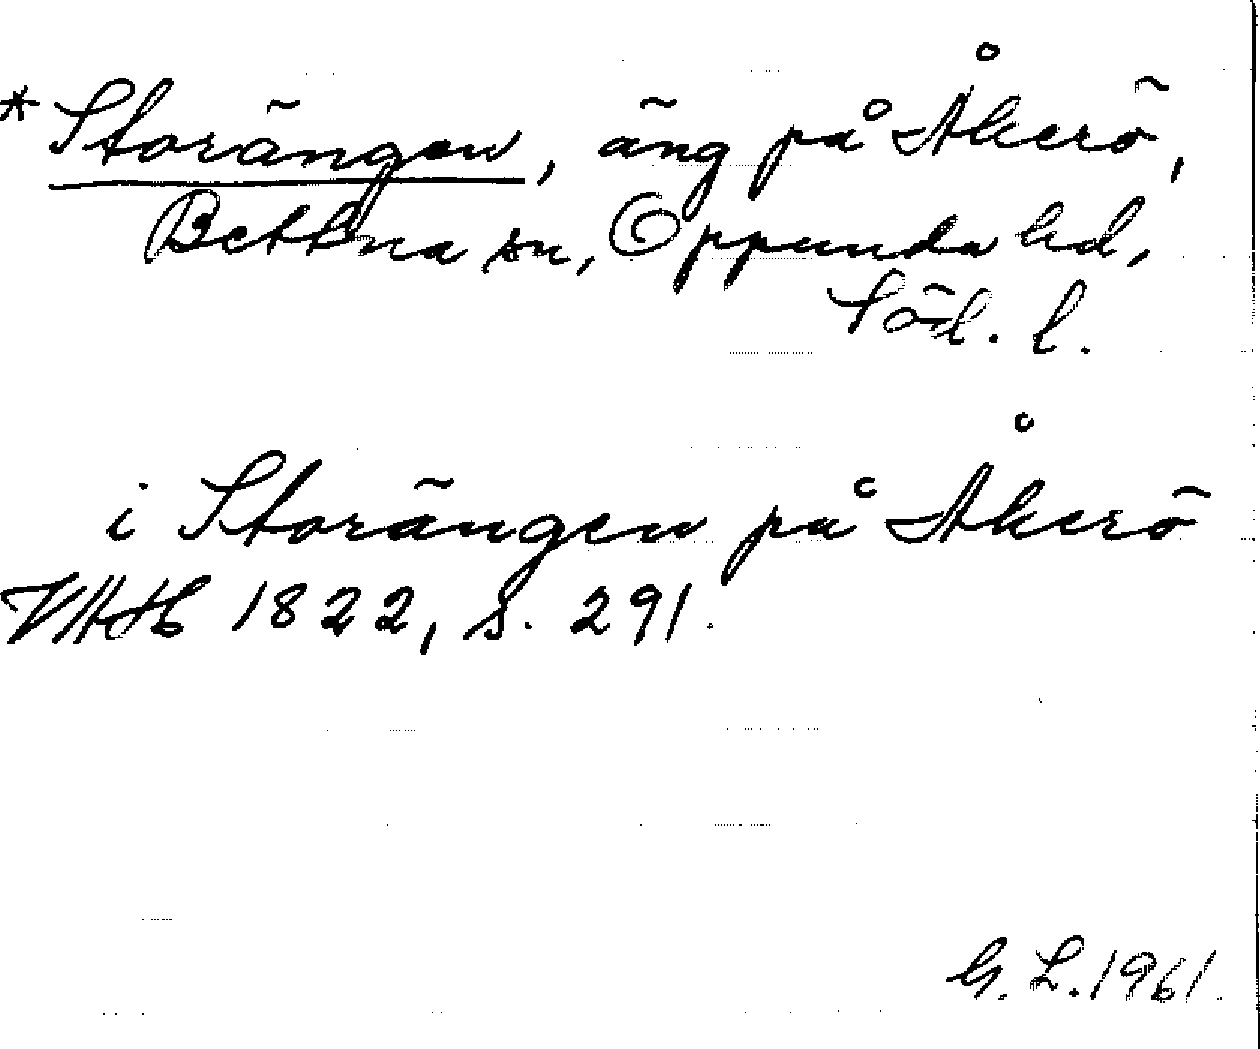 * Storängen, äng på Åkerö,
Bettna sn, Oppunda hd,
Söd. l.
i Storängen på Åkerö
VAH 1822, s. 291.
G. L. 1961.